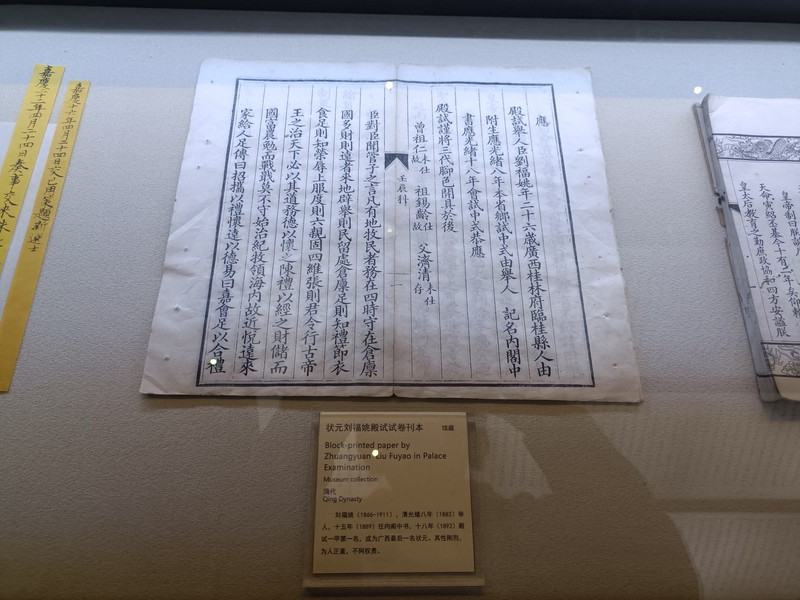 應
殿試舉人臣劉福姚年二十六歲廣西桂林府臨桂縣人由
附生應光緒八年本省鄉試中式由舉人 記名內閣中
書應光緒十八年會試中式恭應
殿試謹將三代腳色開具於後
曾祖仁未仕故 祖錫齡仕故 父濟清未仕存
壬辰科
一
臣對臣聞管子之言凡有地牧民者務在四時守在倉廩
國多財則遠者來地辟舉則民留處倉廩足則知禮節衣
食足則知榮辱上服度則六親固四維張則君令行古帝
王之治天下必以其道務德以懷之陳禮以經之財儲而
國富農勉而戰戢莫不守始治紀牧領海內故近悅遠來
家給人足傳曰招攜以禮懷遠以德易曰嘉會足以合禮
皇帝制曰朕
皇太后教育之勤庶政協和四方安謐朕
嘉慶二十二年四月二十四日奏事
状元刘福姚殿试试卷刊本 馆藏
Block-printed paper by
Zhuangyuan Liu Fuyao in Palace
Examination
Museum collection
清代
Qing Dynasty
刘福姚（1866-1911），清光绪八年（1882）举
人，十五年（1889）任内阁中书，十八年（1892）殿
试一甲第一名，成为广西最后一名状元。其性刚烈，
为人正直，不阿权贵。